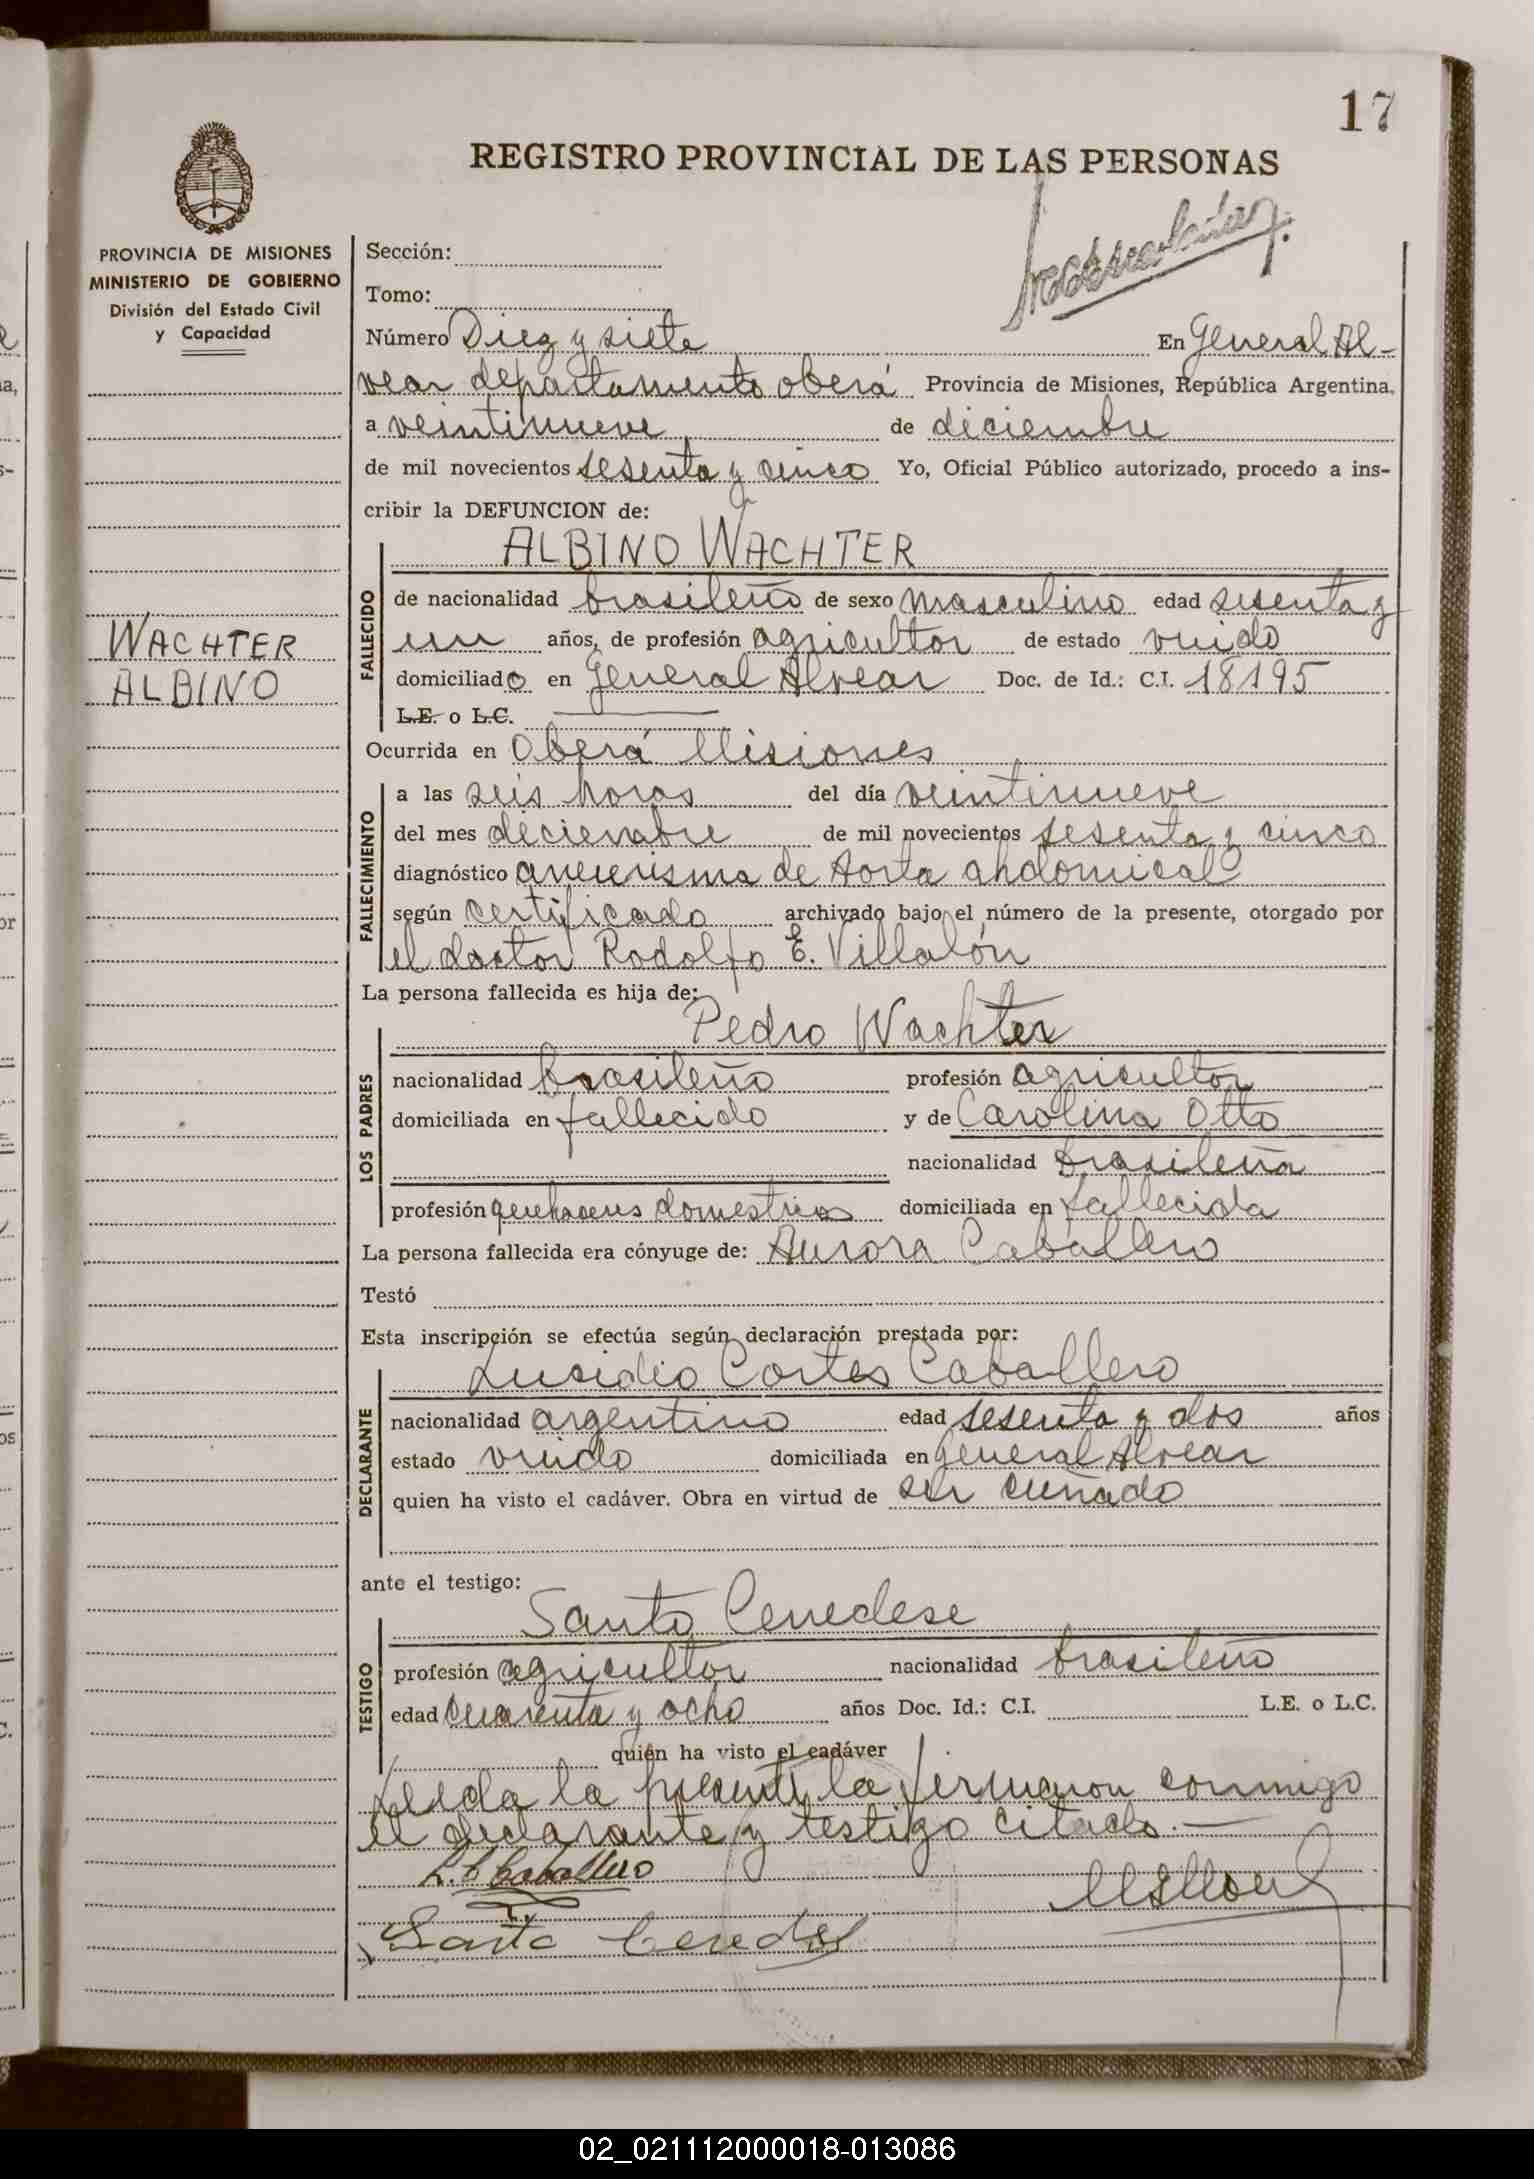 17
REGISTRO PROVINCIAL DE LAS PERSONAS
PROVINCIA DE MISIONES
MINISTERIO DE GOBIERNO
División del Estado Civil
y Capacidad
WACHTER
ALBINO
Sección:
Tomo:
Número Diez y siete En General Al-
vear departamento oberá Provincia de Misiones, República Argentina,
a veintinueve de diciembre
de mil novecientos sesenta y cinco Yo, Oficial Público autorizado, procedo a ins-
cribir la DEFUNCION de:
ALBINO WACHTER
FALLECIDO
de nacionalidad brasileño de sexo masculino edad sesenta y
un años, de profesión agricultor de estado viudo
domiciliado en General Alvear Doc. de Id.: C.I. 18195
L.E. o L.C.
Ocurrida en Oberá Misiones
FALLECIMIENTO
a las seis horas del día veintinueve
del mes deciembre de mil novecientos sesenta y cinco
diagnóstico aneurisma de Aorta abdominal
según certificado archivado bajo el número de la presente, otorgado por
el doctor Rodolfo E. Villalón
La persona fallecida es hija de:
Pedro Wachter
LOS PADRES
nacionalidad brasileño profesión agricultor
domiciliada en fallecido y de Carolina Otto
nacionalidad brasileña
profesión quehaceres domestricos domiciliada en fallecida
La persona fallecida era cónyuge de: Aurora Caballero
Testó
Esta inscripción se efectúa según declaración prestada por:
Lusidio Cortes Caballero
DECLARANTE
nacionalidad argentino edad sesenta y dos años
estado viudo domiciliada en General Alvear
quien ha visto el cadáver. Obra en virtud de ser cuñado
ante el testigo:
Santo Cenedese
TESTIGO
profesión agricultor nacionalidad brasileño
edad cuarenta y ocho años Doc. Id.: C.I. L.E. o L.C.
quién ha visto el cadáver
Leida la presente la firmaron conmigo
el declarante y testigo citado.—
L. C Caballero
Santo Cenedese
02_021112000018-013086